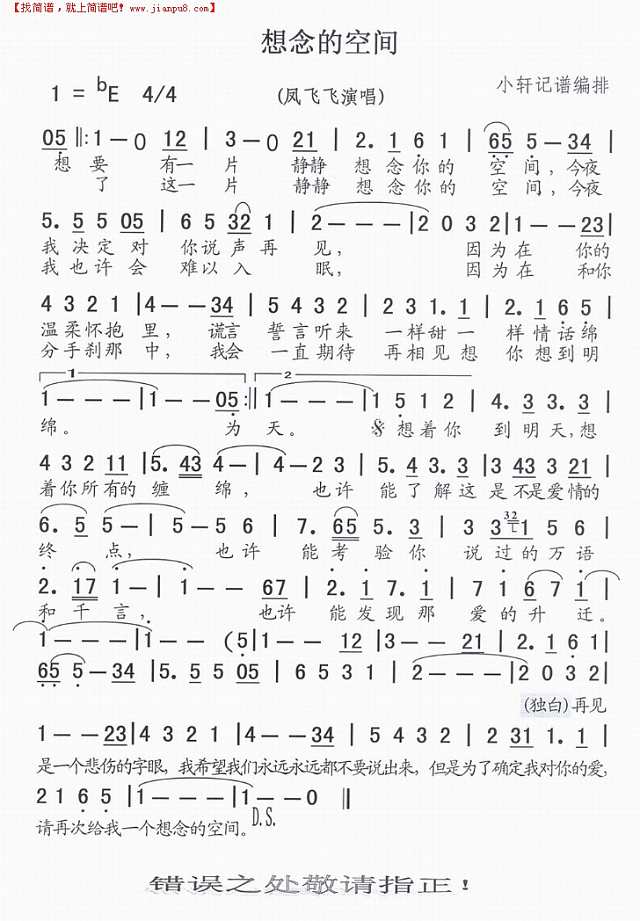 【找简谱，就上简谱吧! www.jianpu8.com】
想念的空间
1 = bE 4/4
(凤飞飞演唱)
小轩记谱编排
05 ‖: 1 — 0 12 | 3 — 0 21 | 2. 1 6 1 | 65 5 — 34 |
想 要 有一 片 静静 想 念 你 的 空 间, 今夜
了 这一 片 静静 想 念 你 的 空 间, 今夜
5. 5 5 05 | 6 5 32 1 | 2 — — — | 2 0 3 2 | 1 — — 23 |
我 决 定 对 你 说 声 再 见, 因 为 在 你的
我 也 许 会 难 以 入 眠, 因 为 在 和你
4 3 2 1 | 4 — — 34 | 5 4 3 2 | 2 3 1. 1 | 2. 1 6 5 |
温 柔 怀 抱 里, 谎言 誓 言 听 来 一 样 甜 一 样 情 话 绵
分 手 刹 那 中, 我会 一 直 期 待 再 相 见 想 你 想 到 明
1 2
1 — — — | 1 — — 05 :‖ 1 — — — | 1 5 1 2 | 4. 3 3. 3 |
绵。 为 天。 想 着 你 到 明 天, 想
4 3 2 11 | 5. 43 4 — | 4 — 2 3 | 5. 4 3. 3 | 3 43 3 21 |
着 你 所 有的 缠 绵, 也 许 能 了 解 这 是 不是 爱 情的
6. 5 5 — | 5 — 5 6 | 7. 65 5. 3 | 3 3 32 1 5 6 |
终 点, 也 许 能 考 验 你 说 过 的 万 语
2. 17 1 — | 1 — — 67 | 2. 1 7. 1 | 7 1 6 7 1 |
和 千 言, 也许 能 发 现 那 爱 的 升 迁。
1 — — — | 1 — — (5 | 1 — — 12 | 3 — — 21 | 2. 1 6 1 |
65 5 — 34 | 5. 5 5 05 | 6 5 3 1 | 2 — — — | 2 0 3 2 |
(独白) 再见
1 — — 23 | 4 3 2 1 | 4 — — 34 | 5 4 3 2 | 2 31 1. 1 |
是一个悲伤的字眼, 我希望我们永远永远都不要说出来, 但是为了确定我对你的爱,
2 1 6 5 | 1 — — — | 1 — 0 ‖
请再次给我一个想念的空间。 D.S.
错误之处敬请指正!